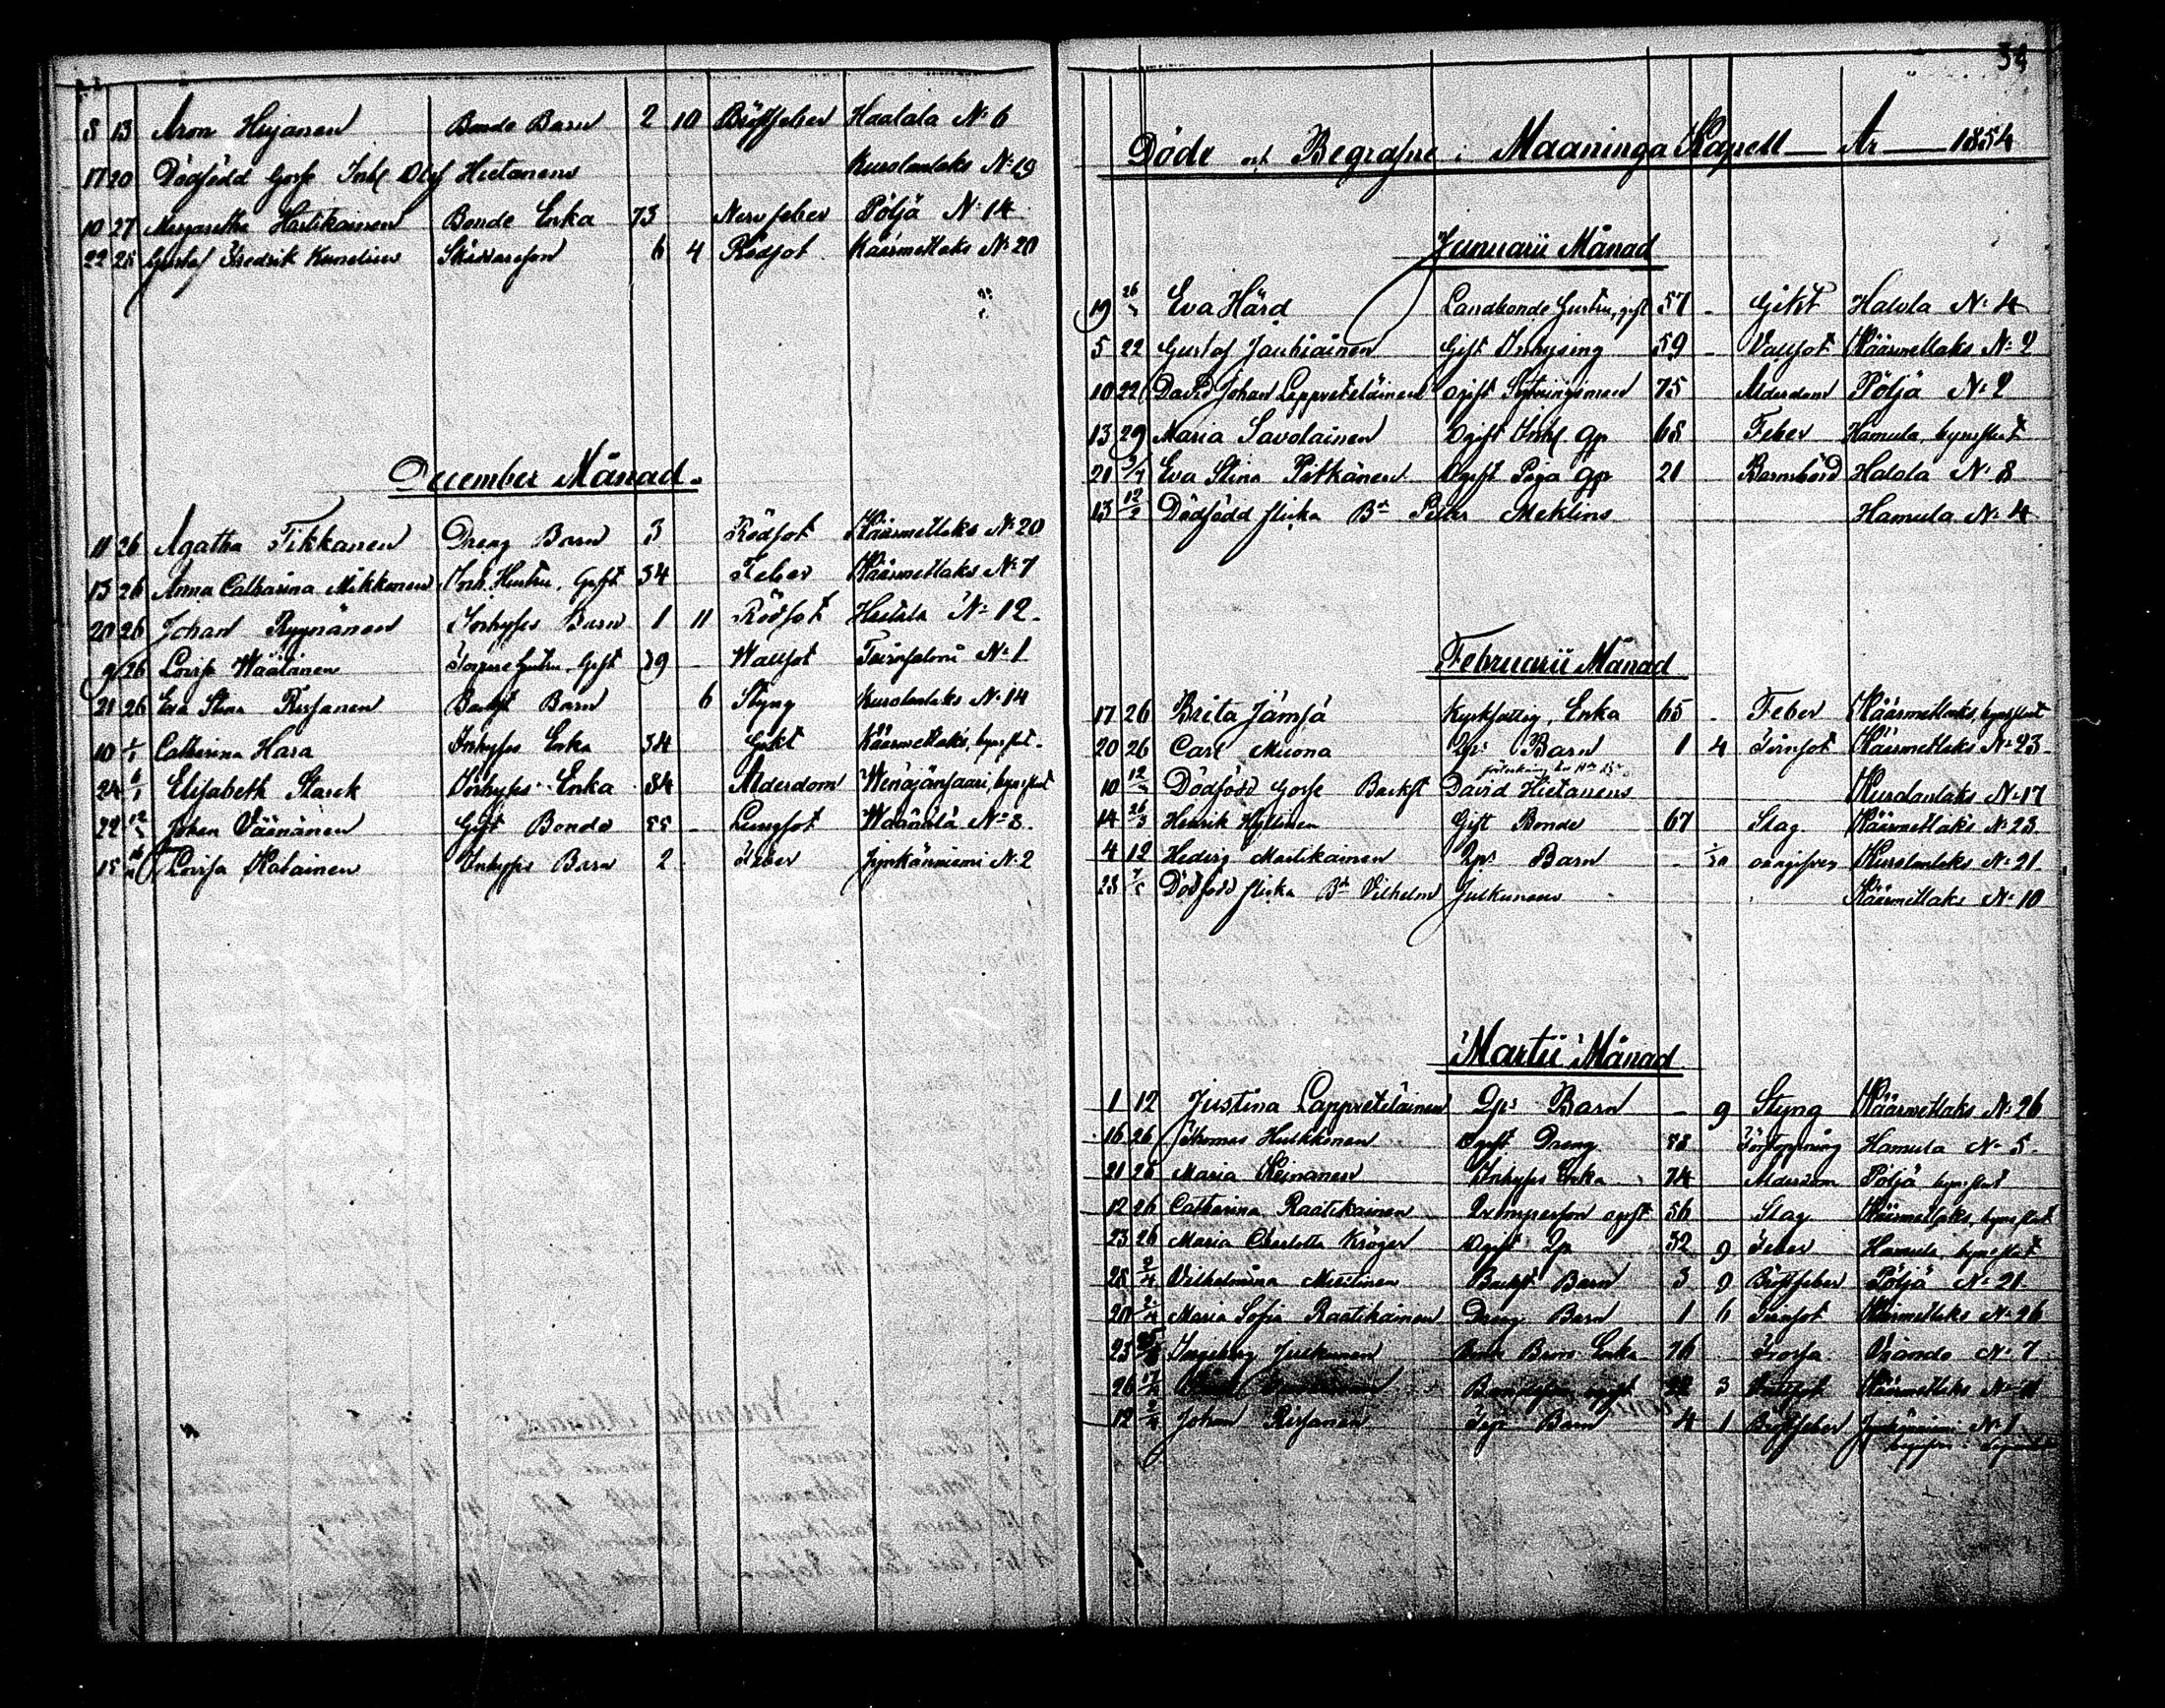 8 13 Aron Heijanen Bonde Barn 2 10 Bröstfeber Haatala N: 6
17 20 Dödfödd Gosse Inh. Olof Hietanens Kurolanlaks N: 19
10 27 Margaretha Hartikainen Bonde Enka 73 Nervfeber Pöljä N: 14
22 25 Gustaf Fredrik 6 4 Rödsot Käärmetlaks N: 20
December Månad.
11 26 Agatha Tikkanen Dreng Barn 3 Rödsot Käärmetlaks N: 20
13 26 Anna Catharina Mikkonen Inh. Hustru, Gift 34 Feber Käärmetlaks N: 7
20 26 Johan Ryynänen Inhyses Barn 1 11 Rödsot N: 12.
9 26 Lovisa Wäätäinen Gift 39 - Wattsot N: 1
21 26 Eva Stina Rissanen Backst Barn 6 Styng Kurolanlaks N: 14
10 1/1 Catharina Hara Inhyses Enka 54 Gikt Käärmetlaks,
24 6/1 Elisabeth Starck Inhyses Enka 84 Alderdom Wenäjänsaari,
22 12/2 Johan Väänänen Gift Bonde 55 - Lungsot N: 8.
15 Lovisa Inhyses Barn 2 Feber Jynkänniemi N: 2
34
Döde och Begrafne i Maaninga Kapell År 1854
Januarii Månad
19 26/3 Eva Hård Landbonde Hustru, gift 57 - Gikt Halola N: 4
5 22 Gustaf Jauhiainen Gift Inhysing 59 - Vattsot Käärmetlaks N: 2
10 22 David Johan Lappveteläinen ogift 75 Alderdom Pöljä N: 2
13 29 Maria Savolainen Ogift Inh. Qp 68 Feber Hamula,
21 Eva Stina Pitkänen Ogift Piga Qp 21 Barnsbörd Halola N: 8
13 12/2 Dödfödd flicka Bd. Petter Meklins Hamula N: 4
Februarii Månad
17 26 Brita Jämsä Kyrkfattig, Enka 65 - Feber Käärmetlaks,
20 26 Carl Miiona Qp: Barn 1 4 Tvinsot Käärmetlaks N: 23
10 12/3 Dödfödd Gosse Backst David Hietanens Kurolanlaks N: 17
14 26/3 Henrik Gift Bonde 67 Slag Käärmetlaks N: 23
4 12 Hedvig Martikainen Qp: Barn - oangifven Kurolanlaks N: 21.
23 Dödfödd flicka Bd. Vilhelm Julkunens Käärmetlaks N: 10
Martii Månad
1 12 Justina Lappveteläinen Qp: Barn - 9 Styng Käärmetlaks N: 26
16 26 Thomas Hulkkonen Ogift Dreng 58 Förstoppning Hamula N: 5.
21 26 Maria Inhyses Enka 74 Alderdom Pöljä
12 26 Catharina Raatikainen ogift 56 Slag Käärmetlaks,
23 26 Maria Charlotta Kröger Ogift Qp 32 9 Feber Hamula,
28 2/4 Vilhelmina Miettinen Backst Barn 3 9 Bröstfeber Pöljä N: 21.
20 2/4 Maria Sofia Raatikainen Dreng Barn 1 6 Tvinsot Käärmetlaks N: 26
23 Ingeborg Julkunen Enka 76 Frossa N: 7
26 17/4 3 Käärmetlaks
12 2/4 Johan Rissanen Barn 4 1 Bröstfeber Jynkänniemi N: 1